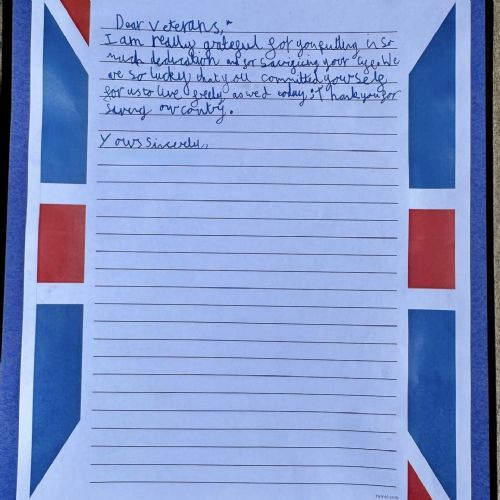 Dear Veterans,
I am really grateful for you putting in so
much dedication and for sacrificing your lifes. We
are so lucky that you committed yourself
for us to live freely as we do today. Thank you for
saving our contry.
Yours sincerely,,